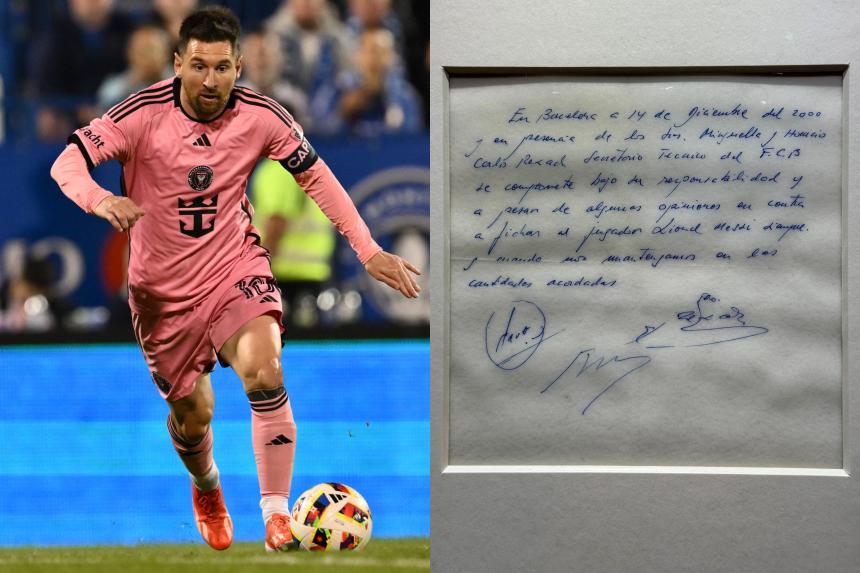 racht
CAPT
10
En Barcelona a 14 de Diciembre del 2000
y en presencia de los Srs. Minguella y Horacio
Carlos Rexach Secretario Tecnico del F.C.B
se compromete bajo su responsabilidad y
a pesar de algunas opiniones en contra
a fichar al jugador Lionel Messi siempre
y cuando nos mantengamos en las
cantidades acordadas